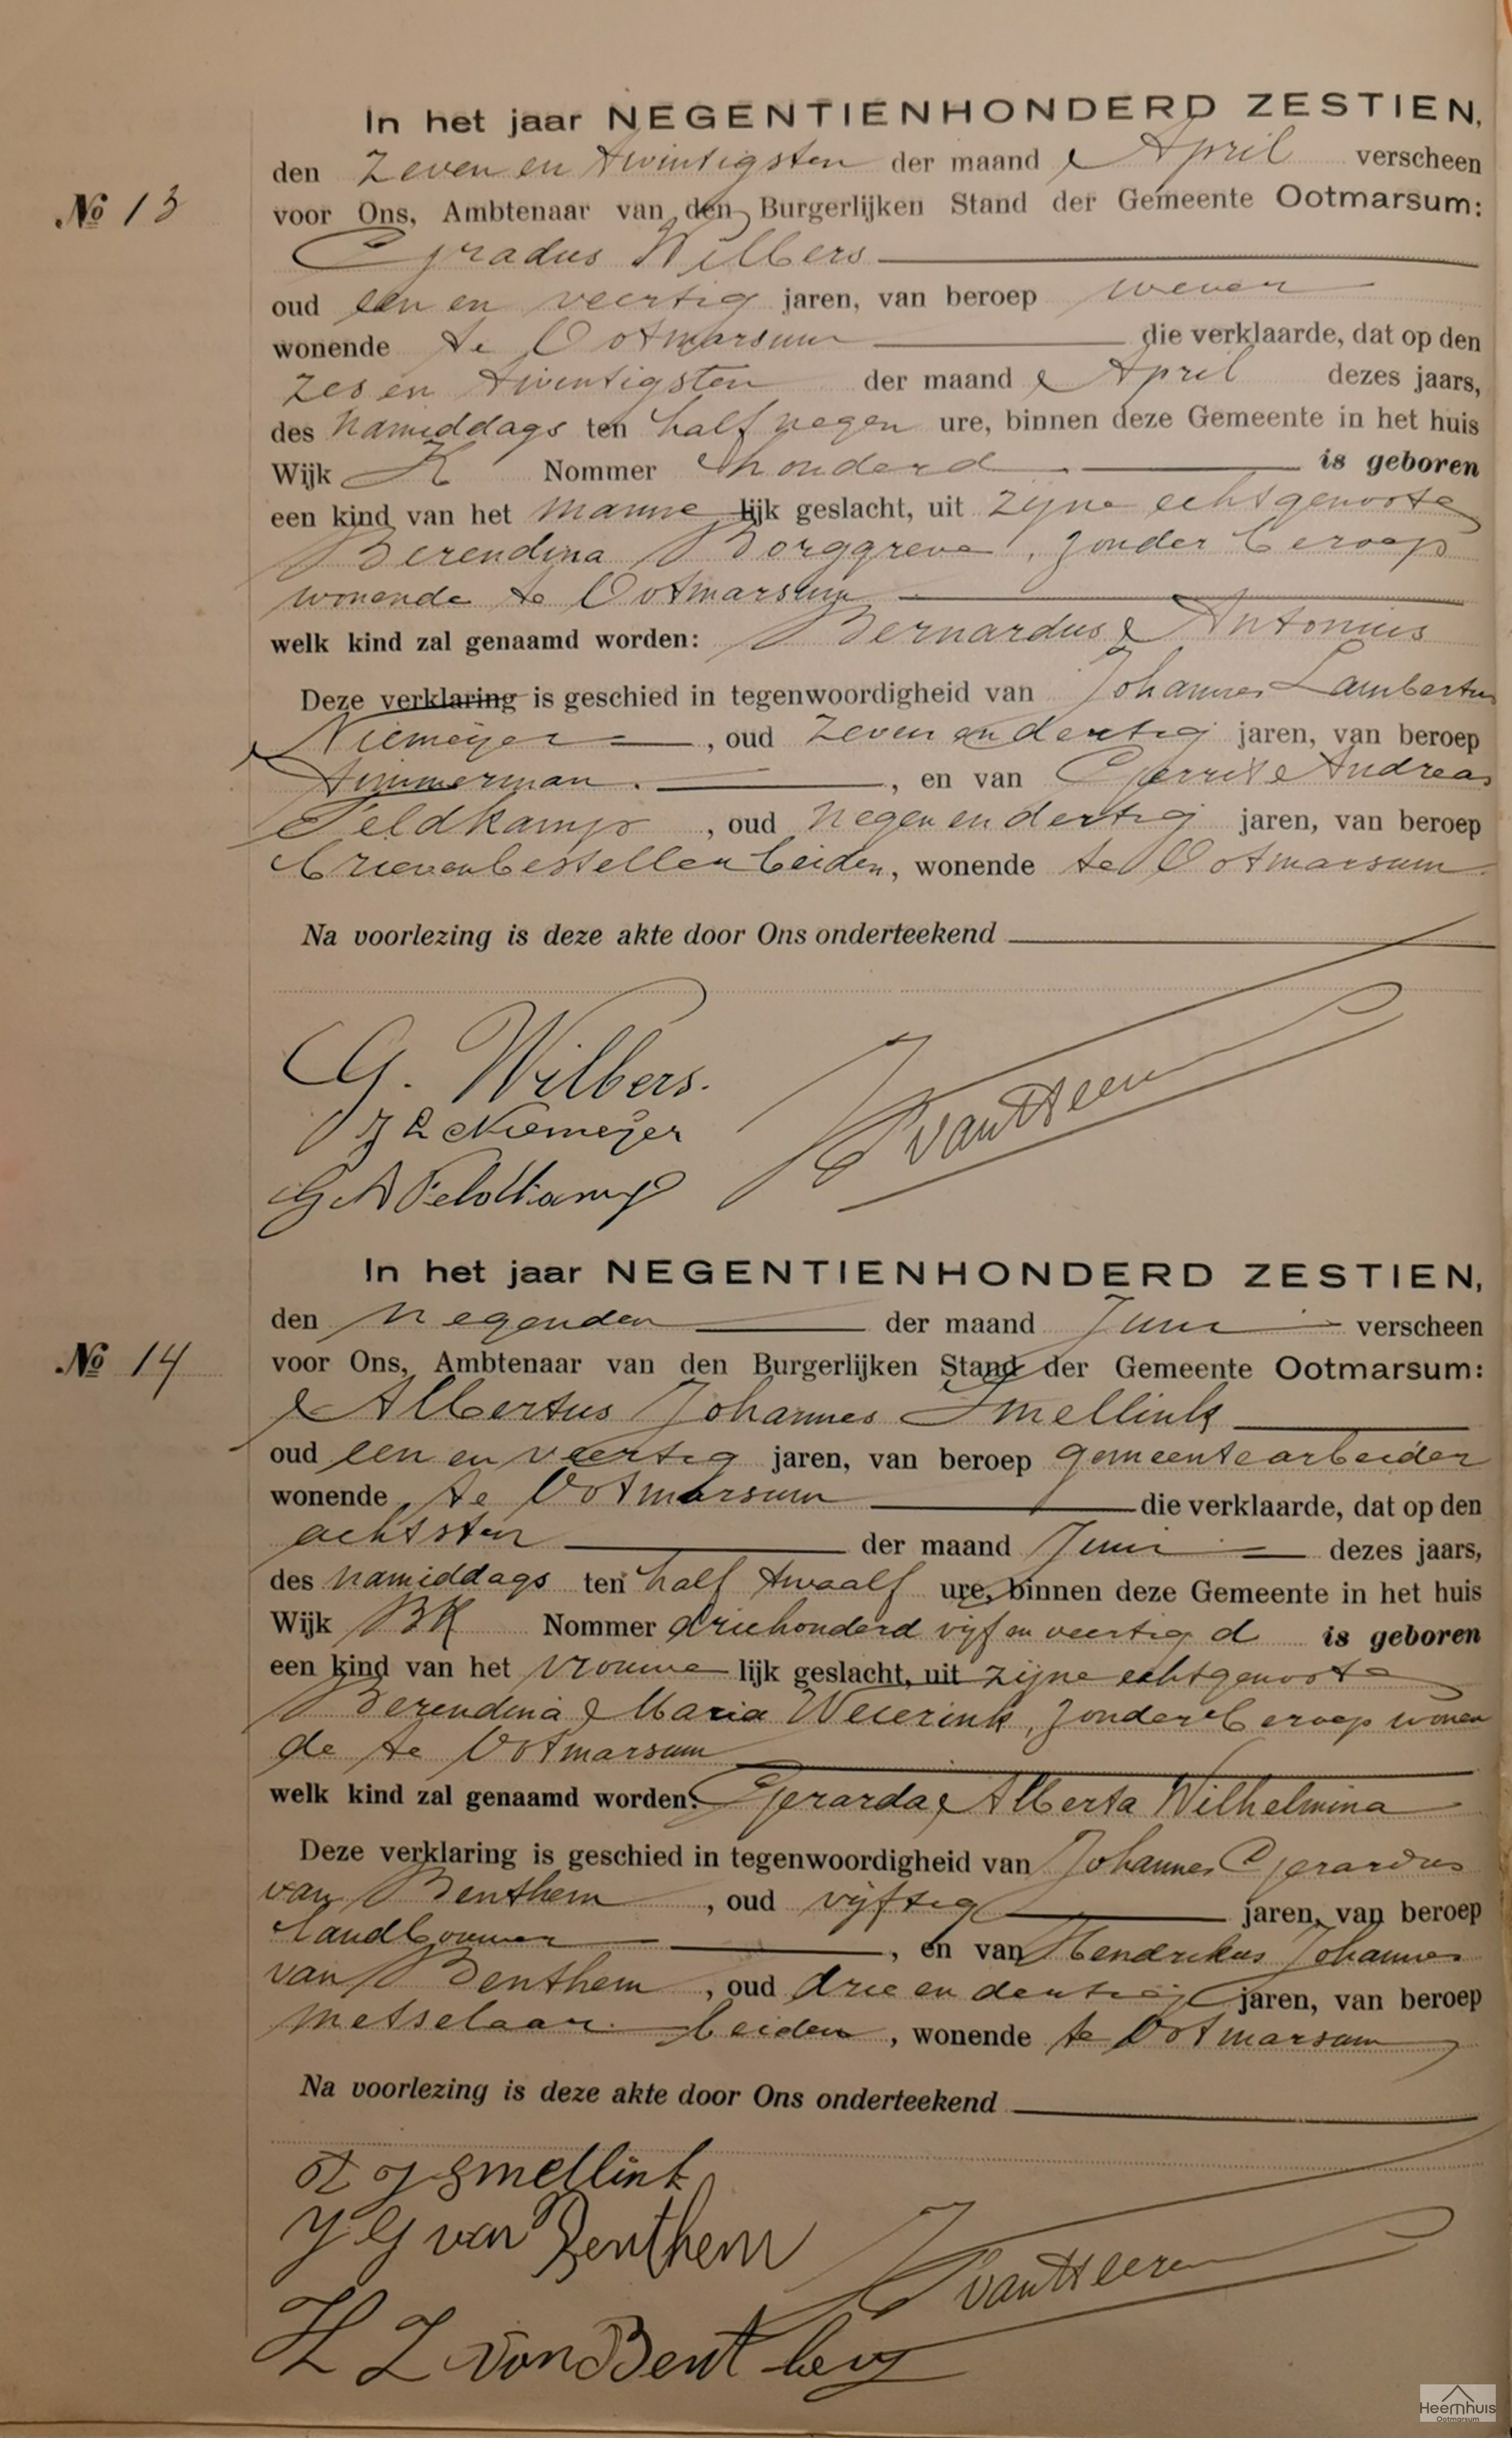 In het jaar NEGENTIENHONDERD ZESTIEN,
den Zeven en twintigsten der maand April verscheen
No 13
voor Ons, Ambtenaar van den Burgerlijken Stand der Gemeente Ootmarsum:
Gradus Wilbers
oud een en veertig jaren, van beroep wever
wonende te Ootmarsum die verklaarde, dat op den
zes en twintigsten der maand April dezes jaars,
des namiddags ten half negen ure, binnen deze Gemeente in het huis
Wijk K Nommer honderd is geboren
een kind van het manne lijk geslacht, uit zijne echtgenoote
Berendina Borggreve, zonder beroep
wonende te Ootmarsum
welk kind zal genaamd worden: Bernardus Antonius
Deze verklaring is geschied in tegenwoordigheid van Johannes Lambertus
Niemeijer, oud Zeven en dertig jaren, van beroep
timmerman, en van Gerrit Andreas
Veldkamp, oud negen en dertig jaren, van beroep
brievenbesteller beiden, wonende te Ootmarsum
Na voorlezing is deze akte door Ons onderteekend
G. Wilbers.
J L Niemeijer
vanHeen
G A Veldkamp
In het jaar NEGENTIENHONDERD ZESTIEN,
den negenden der maand Juni verscheen
No 14
voor Ons, Ambtenaar van den Burgerlijken Stand der Gemeente Ootmarsum:
Albertus Johannes Smellink
oud een en veertig jaren, van beroep gemeentearbeider
wonende te Ootmarsum die verklaarde, dat op den
achtsten der maand Juni dezes jaars,
des namiddags ten half twaalf ure, binnen deze Gemeente in het huis
Wijk BK Nommer driehonderd vijf en veertig d is geboren
een kind van het vrouwe lijk geslacht, uit zijne echtgenoote
Berendina Maria Weierink, zonder beroep wonen
de te Ootmarsum
welk kind zal genaamd worden: Gerarda Alberta Wilhelmina
Deze verklaring is geschied in tegenwoordigheid van Johannes Gerardus
van Benthem, oud vijftig jaren, van beroep
landbouwer, en van Hendrikus Johannes
van Benthem, oud drie en dertig jaren, van beroep
metselaar beiden, wonende te Ootmarsum
Na voorlezing is deze akte door Ons onderteekend
Smellink
J G van Benthem
vanHeen
H J van Benthem
Heemhuis
Ootmarsum